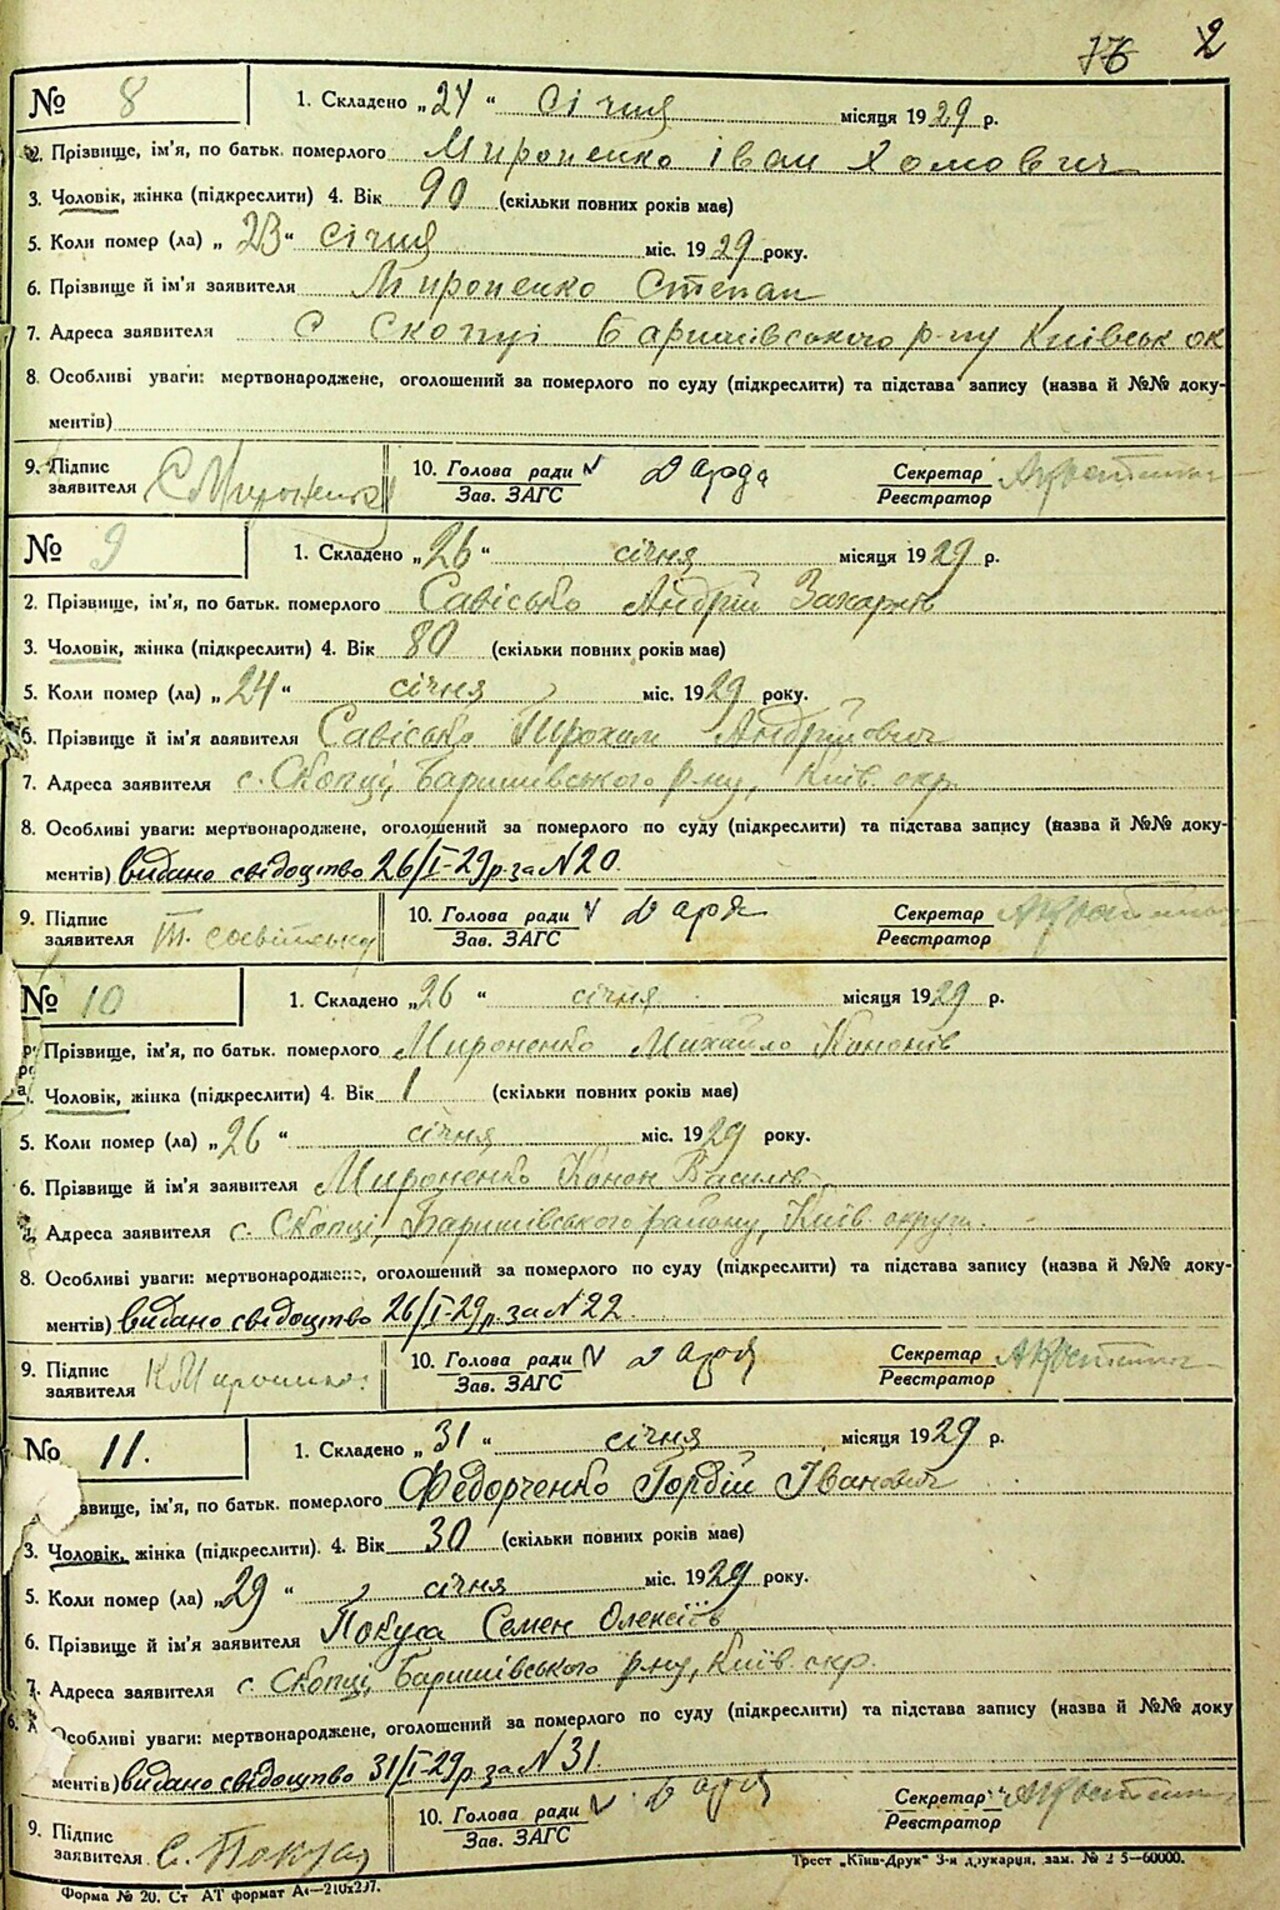 76 2
№ 8 1. Складено „24“ Січня місяця 1929 р.
2. Прізвище, ім'я, по батьк. померлого Мироненко Іван Хомович
3. Чоловік, жінка (підкреслити) 4. Вік 90 (скільки повних років має)
5. Коли помер (ла) „23“ Січня міс. 1929 року.
6. Прізвище й ім'я заявителя Мироненко Степан
7. Адреса заявителя С Скопці Баришівського р-ну Київськ ок
8. Особливі уваги: мертвонароджене, оголошений за померлого по суду (підкреслити) та підстава запису (назва й №№ доку-
ментів)
9. Підпис заявителя С Мироненко 10. Голова ради Зав. ЗАГС Секретар Реєстратор
№ 9 1. Складено „26“ січня місяця 1929 р.
2. Прізвище, ім'я, по батьк. померлого Савісько Андрій Захарів
3. Чоловік, жінка (підкреслити) 4. Вік 80 (скільки повних років має)
5. Коли помер (ла) „24“ січня міс. 1929 року.
6. Прізвище й ім'я заявителя Савісько Трохим Андрійович
7. Адреса заявителя с. Скопці, Баришівського р-ну, Київ. окр.
8. Особливі уваги: мертвонароджене, оголошений за померлого по суду (підкреслити) та підстава запису (назва й №№ доку-
ментів) видано свідоцтво 26/I-29 р. за N 20.
9. Підпис заявителя 10. Голова ради Зав. ЗАГС Секретар Реєстратор
№ 10 1. Складено „26“ січня місяця 1929 р.
Прізвище, ім'я, по батьк. померлого Мироненко Михайло Кононів
Чоловік, жінка (підкреслити) 4. Вік 1 (скільки повних років має)
5. Коли помер (ла) „26“ січня міс. 1929 року.
6. Прізвище й ім'я заявителя Мироненко Конон Василів
Адреса заявителя с. Скопці, Баришівського району, Київ. округи.
8. Особливі уваги: мертвонароджене, оголошений за померлого по суду (підкреслити) та підстава запису (назва й №№ доку-
ментів) видано свідоцтво 26/I-29 р. за N 22.
9. Підпис заявителя 10. Голова ради Зав. ЗАГС Секретар Реєстратор
№ 11. 1. Складено „31“ січня місяця 1929 р.
звище, ім'я, по батьк. померлого Федорченко Гордій Іванович
3. Чоловік, жінка (підкреслити). 4. Вік 30 (скільки повних років має)
5. Коли помер (ла) „29“ січня міс. 1929 року.
6. Прізвище й ім'я заявителя Покуса Семен Олексіїв
7. Адреса заявителя с. Скопці, Баришівського р-ну, Київ. окр.
Особливі уваги: мертвонароджене, оголошений за померлого по суду (підкреслити) та підстава запису (назва й №№ доку
ментів) видано свідоцтво 31/I-29 р. за N 31.
9. Підпис заявителя С. Покуса 10. Голова ради Зав. ЗАГС Секретар Реєстратор
Форма № 20. Ст АТ формат А4—210х297. Трест „Київ-Друк“ 3-я друкарня, зам. № 5—60000.